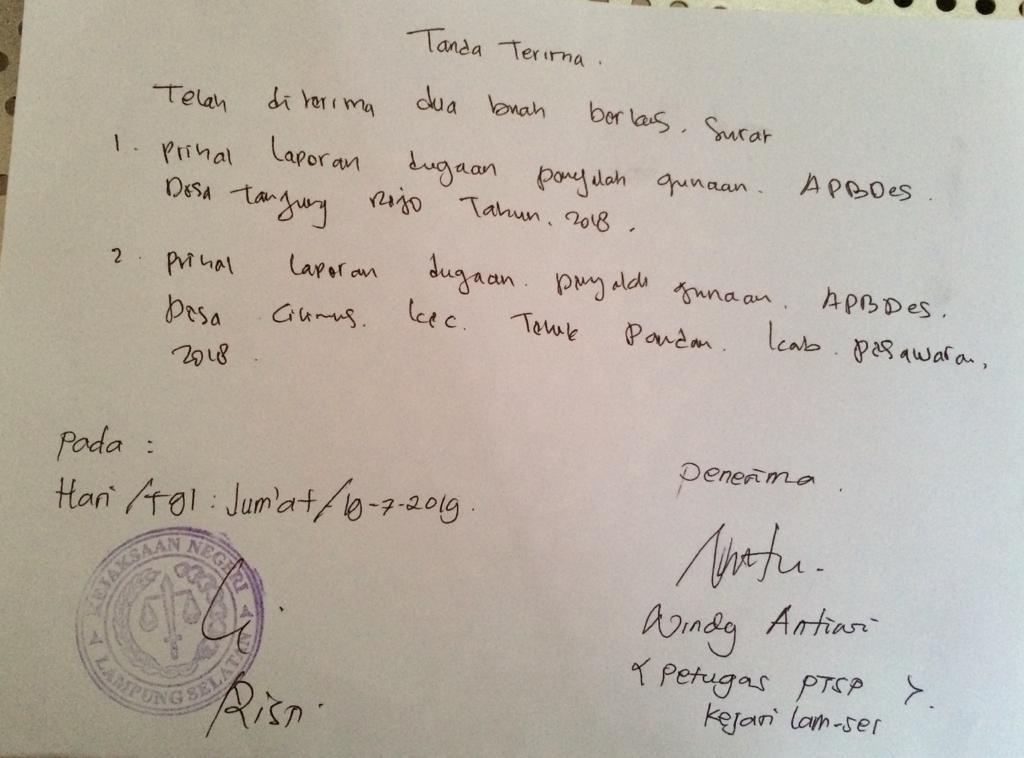 Tanda Terima.
Telah diterima dua buah berkas. Surat
1. Prihal Laporan dugaan penyalah gunaan. APBDes.
Desa Tanjung Rejo Tahun. 2018.
2. Prihal Laporan dugaan. penyalah gunaan. APBDes.
Desa Cilimus. Kec. Teluk Pandan. Kab. Pesawaran,
2018.
Pada :
Hari /Tgl : Jum'at/19-7-2019.
Penerima.
KEJAKSAAN NEGERI
LAMPUNG SELATAN
Windy Antiari
( Petugas PTSP ).
Kejari Lam-sel